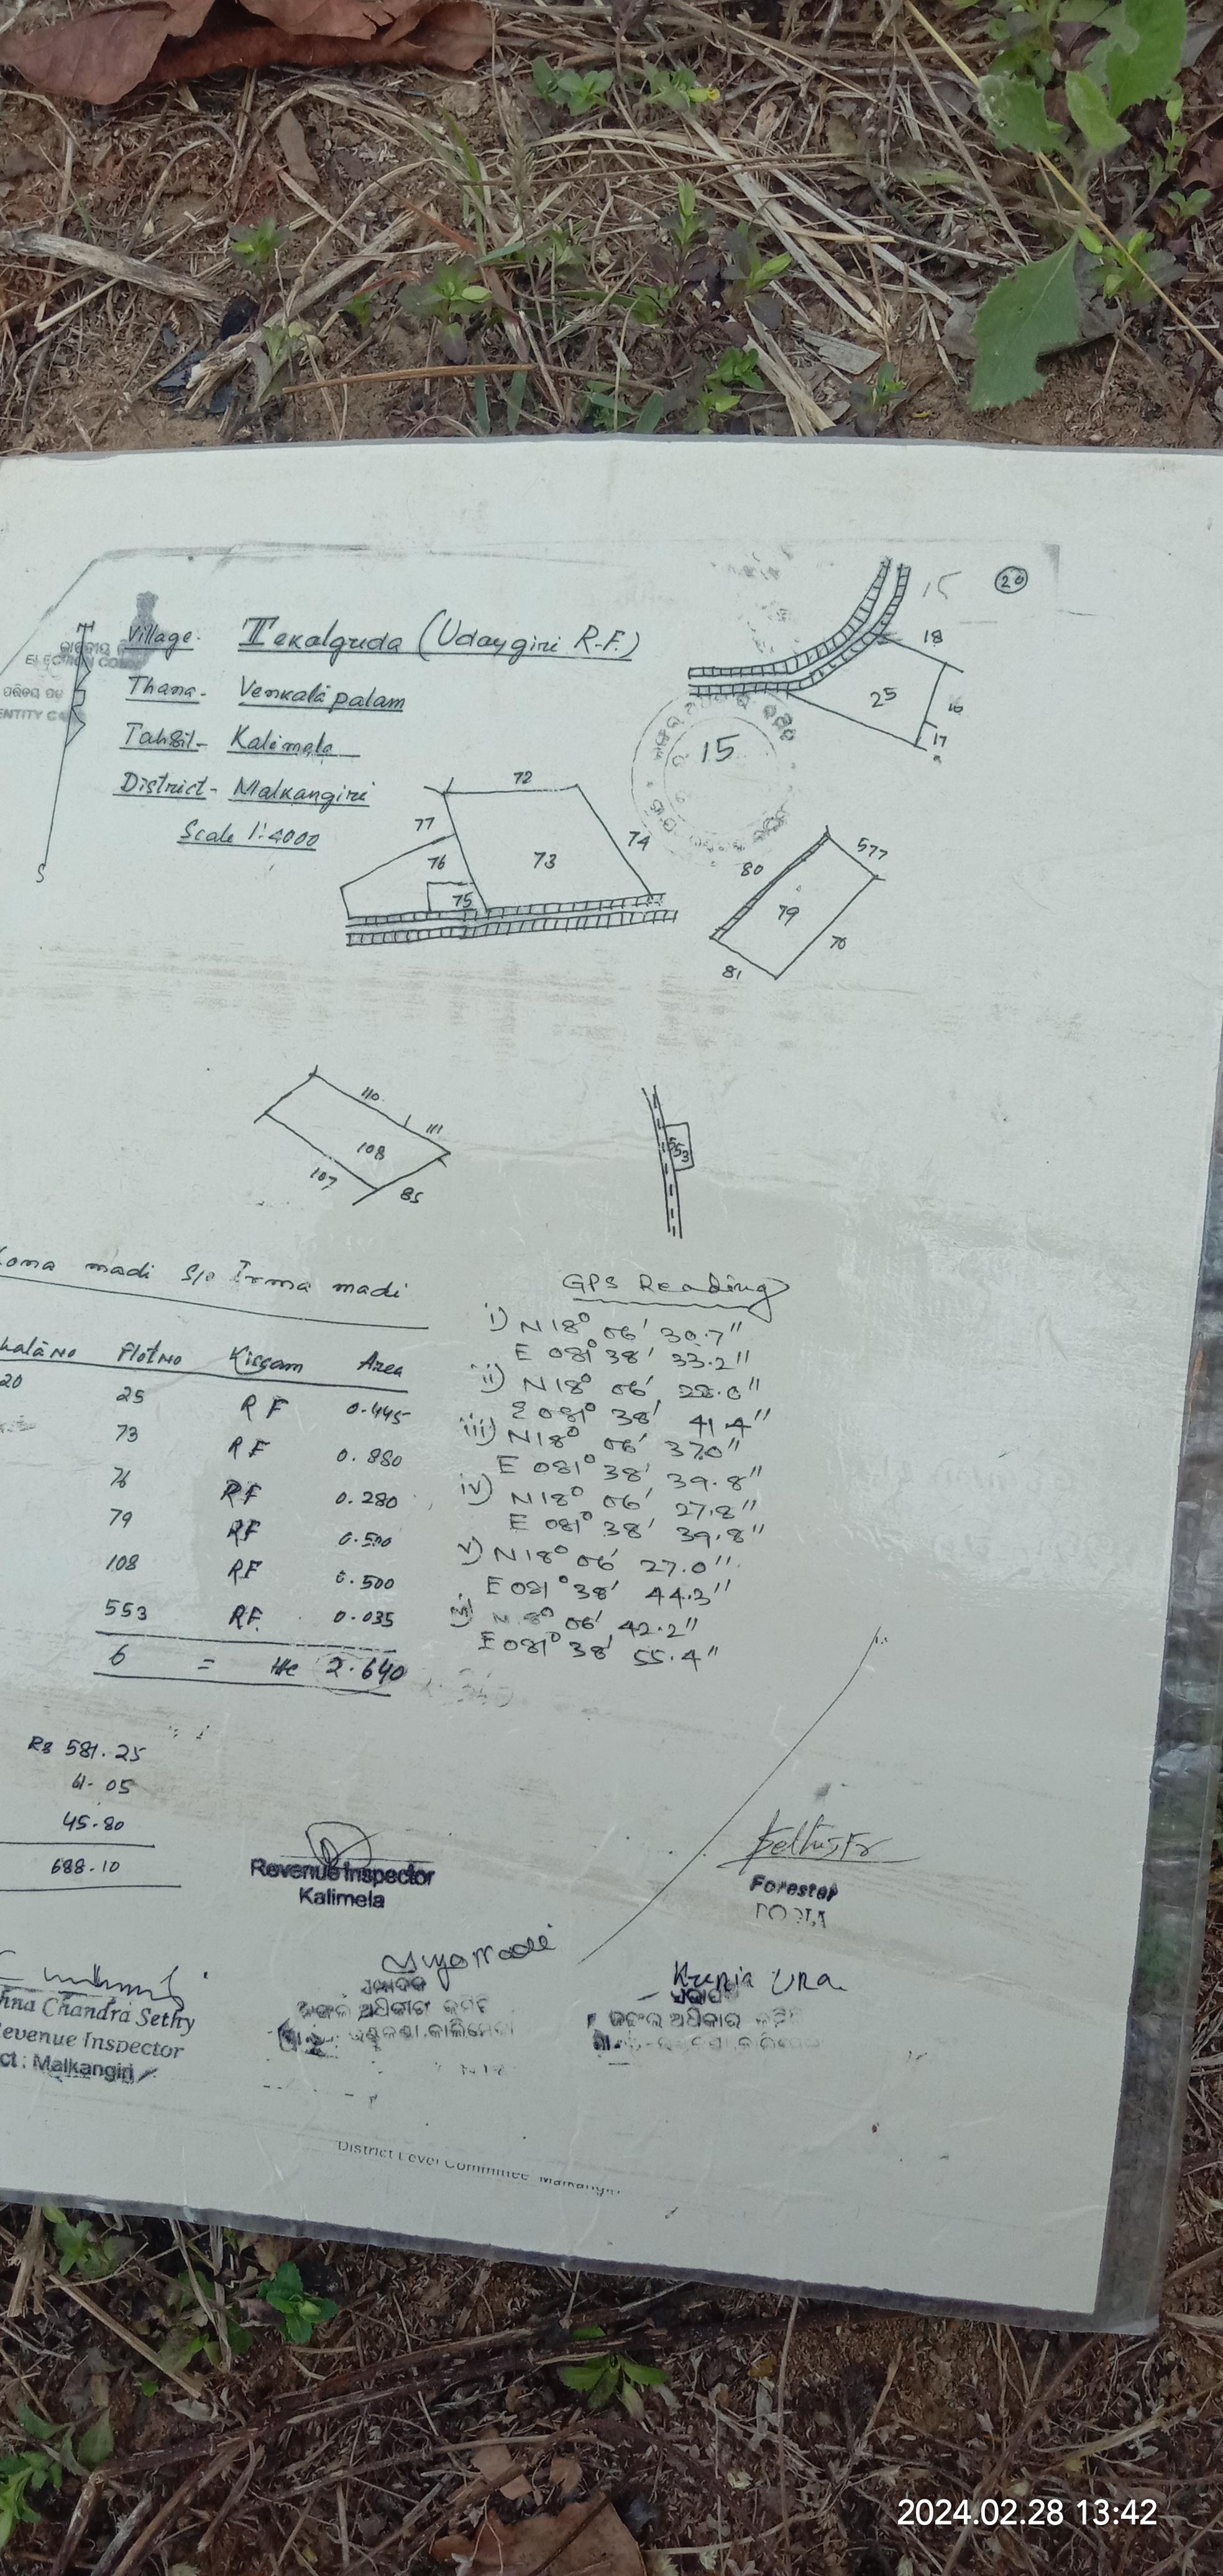 20
15
Village: Tekalguda (Udaygiri R.F.)
Thana- Venkatapalam
Tahsil- Kalimela
District- Malkangiri
Scale 1:4000
S
ELECTION COM
ENTITY C
15
18
25
16
17
72
77
74
76
73
75
80
577
79
70
81
110
111
108
107
85
553
Koma madi S/o Irma madi
GPS Reading
Plot No Kissam Area
20 25 RF 0.445
73 RF 0.880
76 RF 0.280
79 RF 0.500
108 RF 0.500
553 RF. 0.035
6 = He 2.640
i) N 18° 06' 30.7"
E 081° 38' 33.2"
ii) N 18° 06' 28.0"
E 081° 38' 41.4"
iii) N 18° 06' 37.0"
E 081° 38' 39.8"
iv) N 18° 06' 27.8"
E 081° 38' 39.8"
v) N 18° 06' 27.0"
E 081° 38' 44.3"
06' 42.2"
E 081° 38' 55.4"
Rs 581.25
61.05
45.80
688.10
Revenue Inspector
Kalimela
Forester
hna Chandra Sethy
evenue Inspector
ct : Malkangiri
ସମ୍ପାଦକ
ଜଙ୍ଗଲ ଅଧିକାର କମିଟି
କାଲିମେଳା
ଜଙ୍ଗଲ ଅଧିକାର କମିଟି
District Level Committee Malkangiri
2024.02.28 13:42